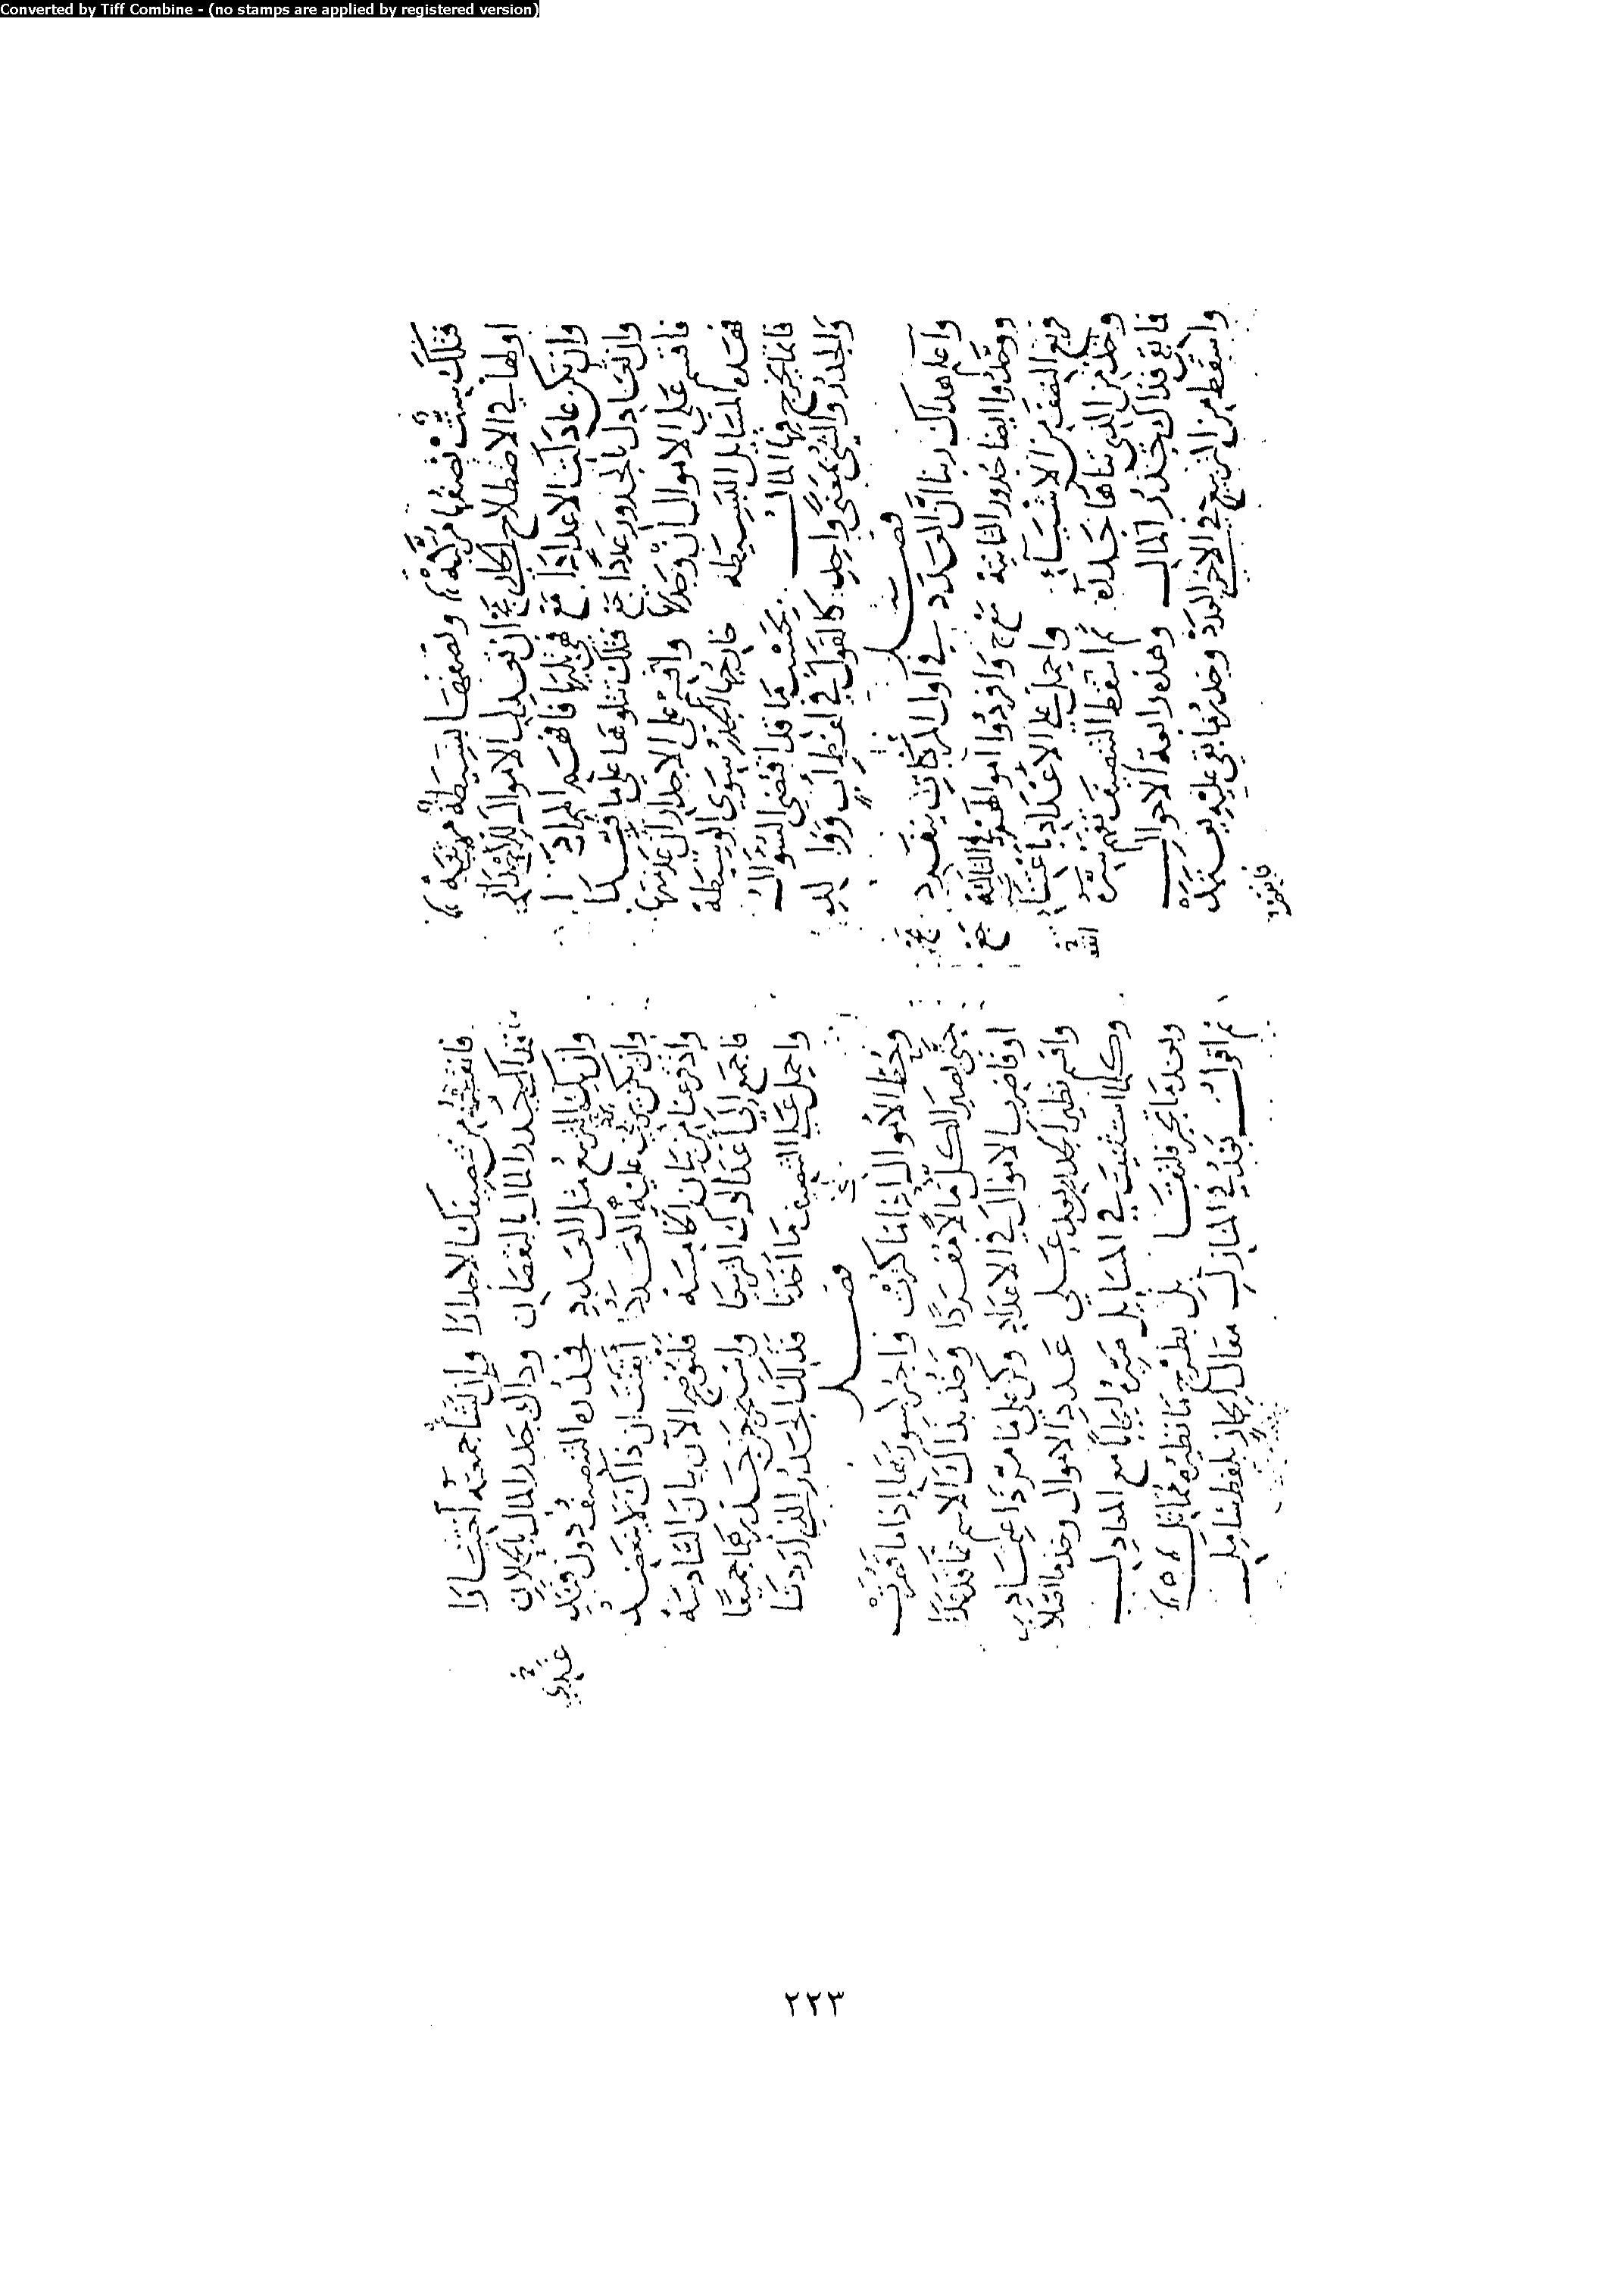 فتلك ست نصفها مركبه ونصفها بسيطة مرتبه
اولها في الاصطلاح الجاري ان تعدل الاموال للأجذار
وان تكن عادلت الاعدادا فهي تليها فافهم المرادا
وان تعادل بالجذور عددا فتلك تتلوها على ما
فاقسم على الاموال ان وجدتها واقسم على الاجذار ان عدمتها
فهذه المسايل البسيطه خارجها الجذر سوى الوسيطه
فانما يخرج فيها المال بحسب ما قد اقتضى السؤال
والجذر والشيء بمعنى واحد كالقول في لفظ أب ووالد
فصل
واعلم هداك ربنا أن العدد في اول المركبات ينفرد
ووحدوا ايضا جذور الثانية وافردوا اموالهم في الثالثة
فربع النصف من الاشياء واحمل على الأعداد باعتناء
وخذ من الذي تناها جذره ثم انقص التنصيف تفهم سره
فما بقي فذاك جذر المال وهذه رابعة الاحوال
واسقط من التربيع في الاخرى العدد وجذر ما بقي عليه يعتمد
فانقصه
فانقصه من تنصيفك الاجذارا وإن تشأ جمعته اختيارا
فذاك جذر المال بالنقصان وذاك جذر المال بالحملان
وان يكن التربيع مثل العدد فجذره التنصيف دون فند
وان يكن يربي عليه العدد أيقنت ان ذاك لا ينعضد
واذ فرغنا من بيان الخامسه فلنوضح الآن بيان السادسه
فاجمع إلى أعدادك التربيعا واستخرجن جذرهما جميعا
واحمل على التنصيف ما اخذتا فذلك الجذر الذي اردتا
فصل
وحط الأموال اذا ما كثرت واجبر كسورها إذا ما قصرت
حتى يصير الكل مالا مفردا وخذ بذاك الاسم مما قد بدا
او فاضرب الاموال في الاعداد وكن على ما مر ذا اعتماد
واقسم نظير الجذر بعد على عدد الاموال وخذ ما
وكلما استثنيت في المسايل صيره ايجابا مع المعادل
وبعد ما تجبر فلتقابل بطرح ما نظيره مماثل
ثم اقول بعد في المنازل مقال ايجاز بلفظ شامل
٢٢٣
Converted by Tiff Combine - (no stamps are applied by registered version)